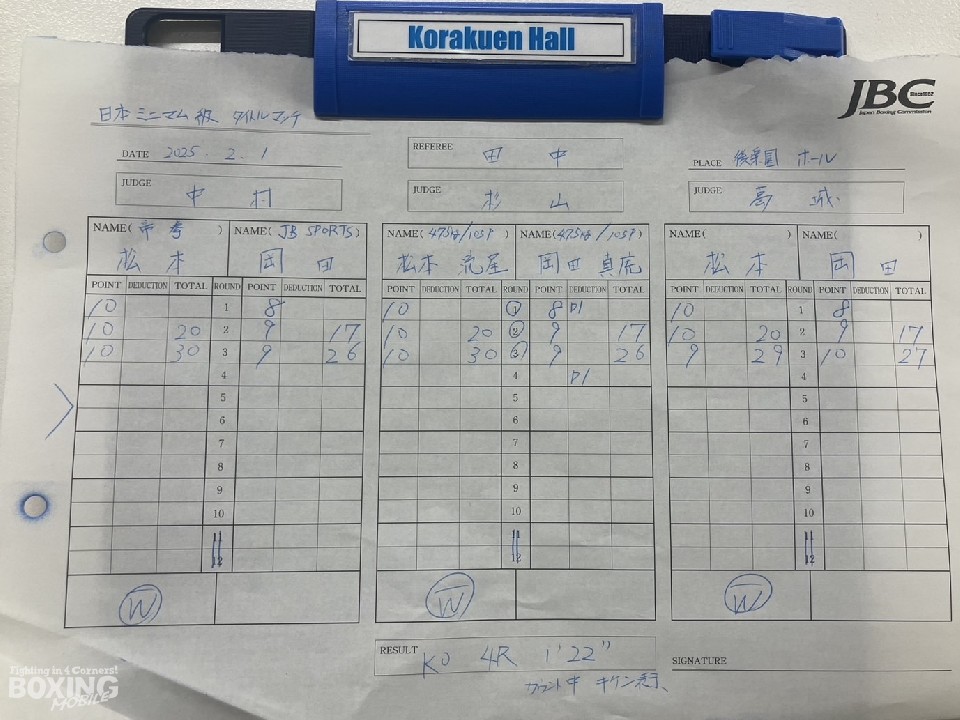 Korakuen Hall
JBC
Since1952
Japan Boxing Commission
日本ミニマム級 タイトルマッチ
DATE 2025. 2. 1
REFEREE 田中
PLACE 後楽園ホール
JUDGE 中村
JUDGE 杉山
JUDGE 葛城
NAME(帝拳) NAME(JB SPORTS)
松本 岡田
NAME(47.5kg/105P) NAME(47.5kg/105P)
松本 流星 岡田 真虎
NAME( ) NAME( )
松本 岡田
POINT DEDUCTION TOTAL ROUND POINT DEDUCTION TOTAL
10 1 8
10 20 2 9 17
10 30 3 9 26
4
5
6
7
8
9
10
11
12
W
POINT DEDUCTION TOTAL ROUND POINT DEDUCTION TOTAL
10 1 8 D1
10 20 2 9 17
10 30 3 9 26
4 D1
5
6
7
8
9
10
11
12
W
POINT DEDUCTION TOTAL ROUND POINT DEDUCTION TOTAL
10 1 8
10 20 2 9 17
9 29 3 10 27
4
5
6
7
8
9
10
11
12
W
RESULT KO 4R 1'22"
カウント中 キケン表示、
SIGNATURE
Fighting in 4 Corners!
BOXING
MOBILE